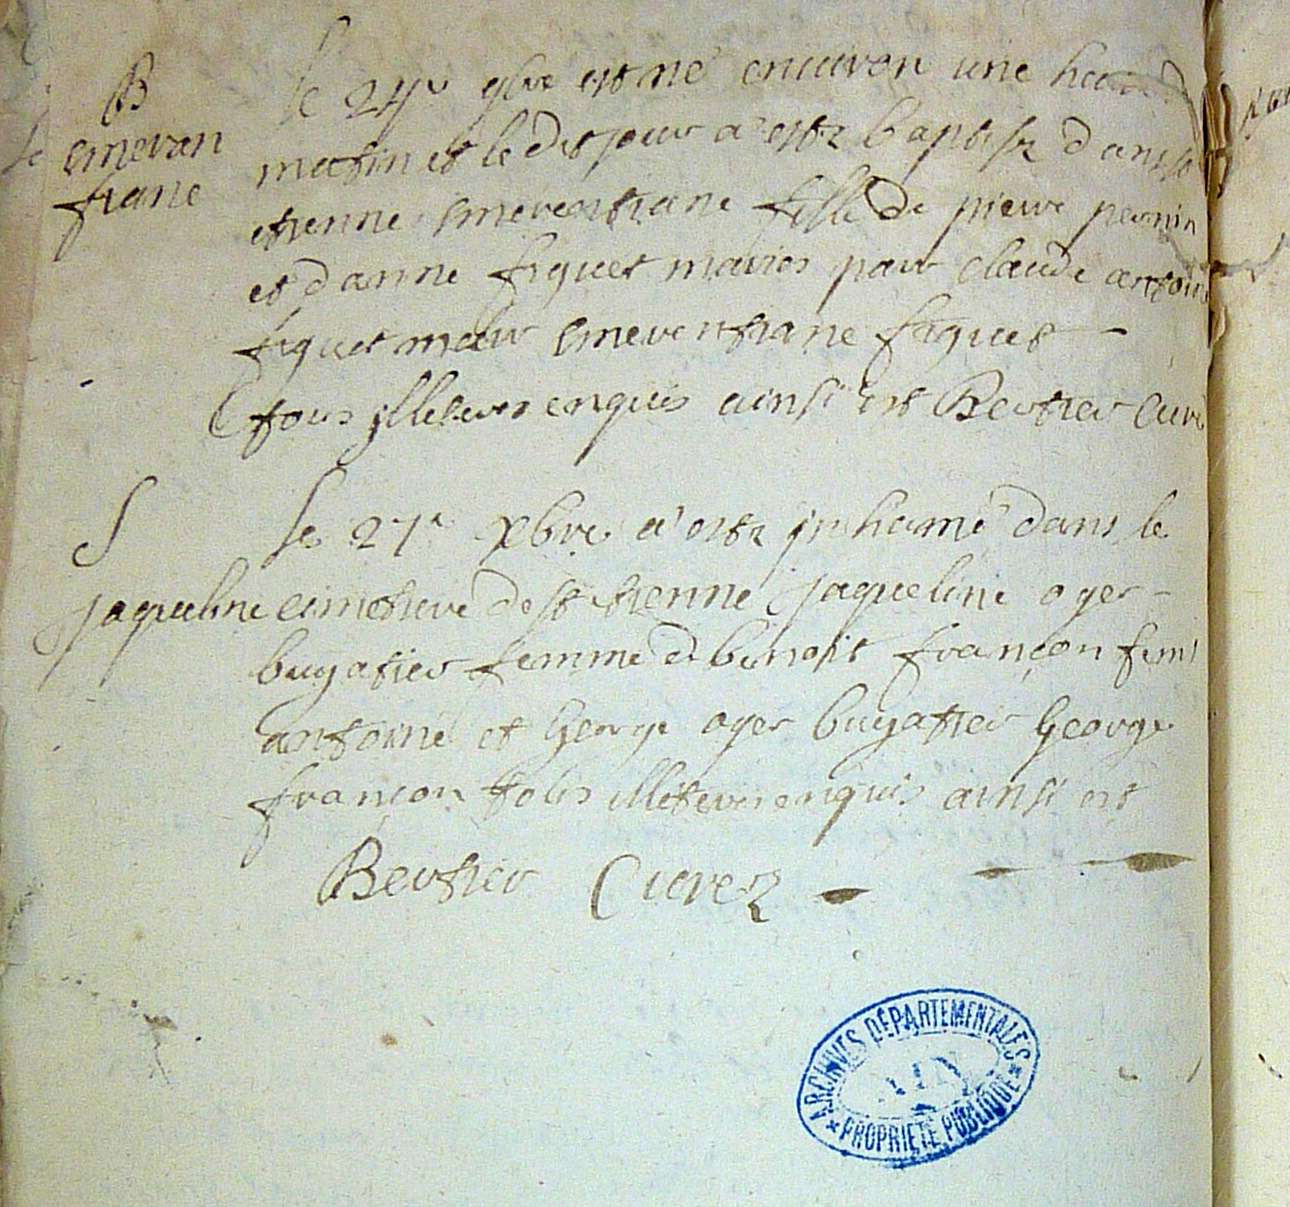 B
emeran
tiane
le 24e 9bre est ne environ une
matin et le dit jour a este baptise dans st
etienne emerentiane fille de pierre pernin
et d anne fiquet maries par claude antoine
fiquet mar emerentiane fiquet
tous illeteres enquis ainsi est Bertier cure
S
jaqueline
le 27e xbre a este inhumé dans le
cimetiere de st etienne jaqueline oyer
bugatier femme de benoist françon
antoine et George oyer bugatier George
françon tous illeteres enquis ainsi est
Bertier Curez
ARCHIVES DÉPARTEMENTALES
AIN
PROPRIÉTÉ PUBLIQUE